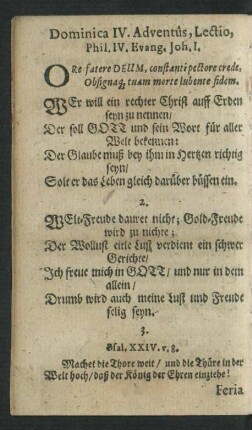 Dominica IV. Adventûs, Lectio,
Phil. IV. Evang. Joh. I.
ORe fatere DEUM, constanti pectore crede,
Obsignaq; tuam morte lubente fidem.
WEr will ein rechter Christ auff Erden
seyn zu nennen/
Der soll GOTT und sein Wort für aller
Welt bekennen:
Der Glaube muß bey ihm in Hertzen richtig
seyn/
Solt er das Leben gleich darüber büssen ein.
2.
WElt-Freude dauret nicht; Gold-Freude
wird zu nichte;
Der Wollust eitle Lust verdient ein schwer
Gerichte/
Ich freue mich in GOTT/ und nur in dem
allein/
Drumb wird auch meine Lust und Freude
selig seyn.
3.
Psal. XXIV. v. 8.
Machet die Thore weit/ und die Thüre in der
Welt hoch/ daß der König der Ehren einziehe!
Feria